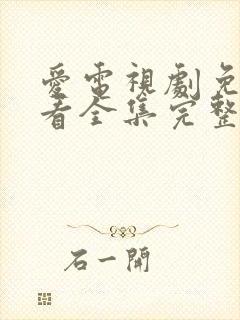 愛電視劇免
看全集完整
石一開